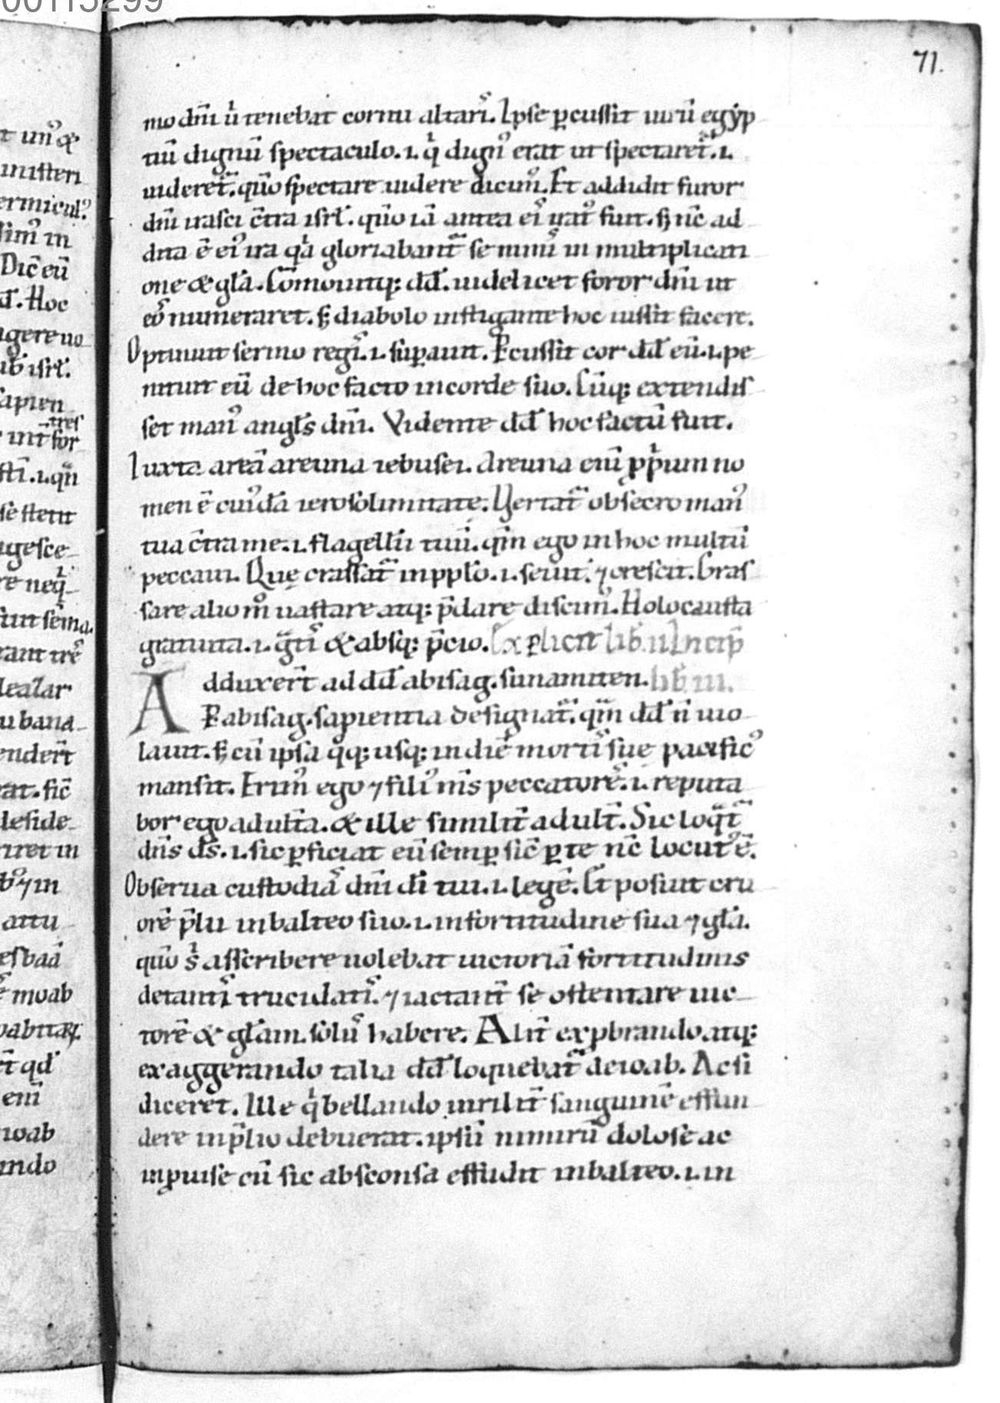 00115299
71.
t un᷒ &
inisteri
ermicul᷒
sim᷒ in
Dic̄ eū
d̄. Hoc
agere uo
ab isrl̄.
sapien
tres
int̄ for
sti᷒ .i. qn̄
se stetit
agesce
re neq̄
sunt sēma.
rant tr̄e
lealar
u bana
endert̄
at. sic̄
deside
rret in
b᷒ ⁊ in
attu
es baā
moab
oabitaꝝ.
t̄ qd̄
enī
ioab
ando
mo dn̄i ů tenebat cornu altari᷒. Ipse ꝑcussit uirū egẏp
tiū dignū spectaculo .i. qͥ dign᷒ erat ut spectaret᷑ .i.
uideret᷑. qūo spectare uidere dicim᷒. Et addidit furor
dn̄i irasci c̄tra isrl̄. qūo iā antea ei᷒ irat᷒ fuit. ẜ nc̄ ad
dita ē ei᷒ ira qͣ gloriabant᷑ se nimū in multiplicati
one & gl̄a. Cōmouitq; dd̄. uidelicet foror dn̄i ut
eo᷒ numeraret. ẜ diabolo instigante hoc iussit facere.
Optinuit sermo regi᷒ .i. suꝑauit. Ꝑcussit cor dd̄ eū .i. pe
nituit eū de hoc facto incorde suo. Cūq; extendis
set man᷒ angl̄s dn̄i. Vidente dd̄ hoc factū fuit.
Iuxta areā areuna iebusei. Areuna enī ꝓpͥum no
men ē cui᷒dā ierosolimitae. Uertat᷑ obsecro man᷒
tua c̄tra me .i. flagellū tuū. qm̄ ego in hoc multū
peccaui. Quę crassat᷑ inppl̄o .i. seuit. ⁊ crescit. Gras
sare alio m̊ uastare atq; p̄dare discim᷒. Holocausta
gratuita .i. gͣti᷒ & absq; p̄cio. Explicit lib̄. ii. Incip̄
lib̄. iii.
Adduxert̄ ad dd̄ abisag. sunamiten.
P abisag. sapientia designat᷑. qm̄ dd̄ n̄ uio
lauit. ẜ cū ipsa qͦq; usq; indiē morti᷒ sue pacific᷒
mansit. Erim᷒ ego ⁊ fili᷒ m̄s peccatore᷒ .i. reputa
bor ego adult̄a. & ille similit̄ adult̄. Sic loqͣt᷑
dn̄s ds̄ .i. sic ꝑficiat eū semꝑ sic̄ ꝑ te nc̄ locut᷒ ē.
Obserua custodiā dn̄i di̅ tui .i. legē. Et posuit cru
orē p̄lii inbalteo suo .i. infortitudine sua ⁊ gl̄a.
qūo sͥ asscribere uolebat uictoriā fortitudinis
detanti᷒ truculati᷒. ⁊ iactant᷑ se ostentare uic
torē & gl̄am solū habere. Alit̄ exp̄brando atq;
exaggerando talia dd̄ loquebat᷑ deioab. Acsi
diceret. Ille qͥ bellando uirilit̄ sanguinē effun
dere inp̄lio debuerat. ipsū nimirū dolose ac
inꝓuise cū sic absconsa effudit inbalteo .i. in